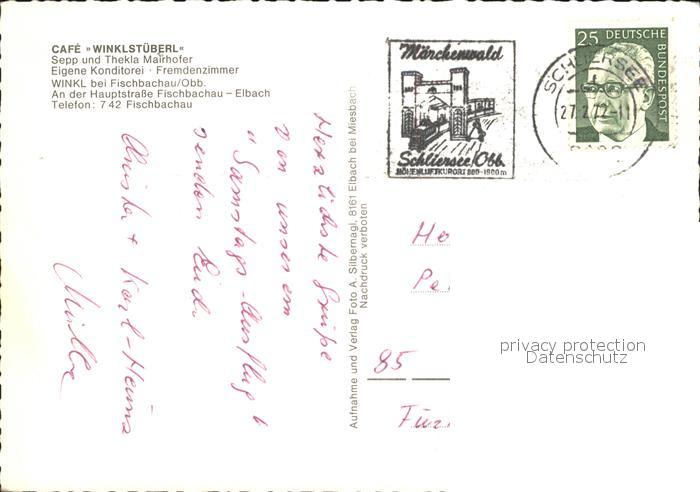 CAFÉ »WINKLSTÜBERL«
Sepp und Thekla Mairhofer
Eigene Konditorei · Fremdenzimmer
WINKL bei Fischbachau/Obb.
An der Hauptstraße Fischbachau – Elbach
Telefon: 7 42 Fischbachau
Herzlichste Grüße
von unserem
"Samstags-Ausflug"
senden Euch
Christa + Karl-Heinz
Müller
Aufnahme und Verlag Foto A. Silbernagl, 8161 Elbach bei Miesbach
Nachdruck verboten
Märchenwald
Schliersee/Obb.
HÖHENLUFTKURORT 800-1800m
SCHLIERSEE
27.2.72-11
25 DEUTSCHE
BUNDESPOST
He
Pe
85
privacy protection
Datenschutz